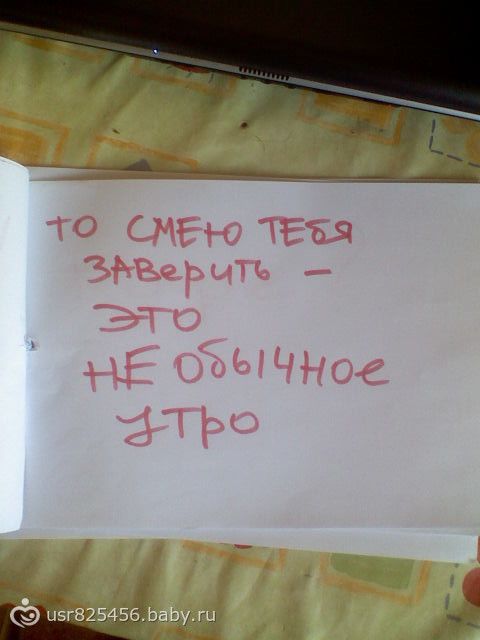 то смею тебя
заверить –
это
не обычное
утро
usr825456.baby.ru